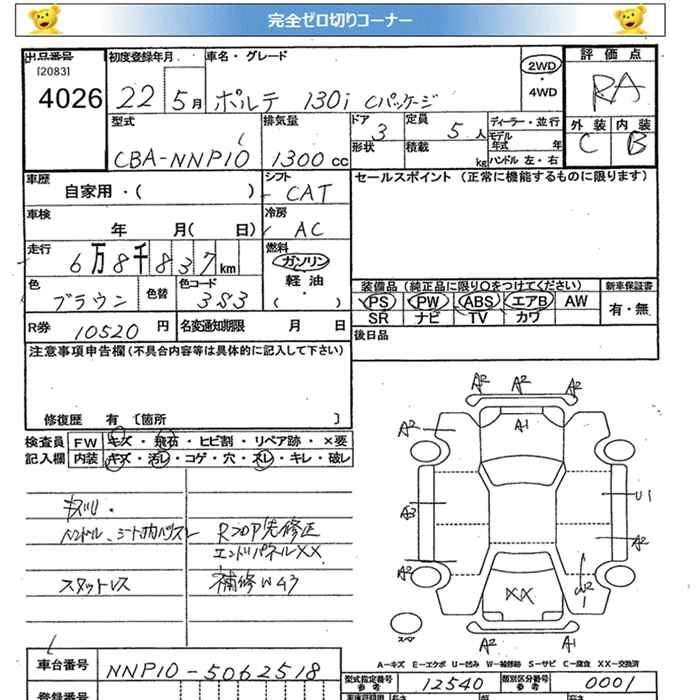 完全ゼロ切りコーナー
出品番号 初度登録年月 車名・グレード 2WD 評価点
[2083]
4026 22 5月 ポルテ 130i Cパッケージ ・ RA
4WD
型式 排気量 ドア 3 定員 5人 ディーラー・並行 外装 内装
CBA-NNP10 1300cc 形状 積載 kg モデル年式 年 C B
ハンドル 左・右
車歴 シフト セールスポイント (正常に機能するものに限ります)
自家用・( ) CAT
車検 冷房
年 月( 日) AC
走行 燃料
6万8千837km ガソリン
・
色 色替 色コード 軽油 装備品(純正品に限り○をつけてください) 新車保証書
ブラウン 3S3 ( ・ ) PS PW ABS エアB AW 有・無
SR ナビ TV カワ
R券 10520円 名変通知期限 月 日 後日品
注意事項申告欄(不具合内容等は具体的に記入して下さい)
修復歴 有 〔箇所 〕
検査員 FW キズ・飛石・ヒビ割・リペア跡・×要
記入欄 内装 キズ・汚レ・コゲ・穴・スレ・キレ・破レ
A2 A2 A2
A2 A1
A3 U1
A2
A2 W2
1
XX
スペア A2 A1
キズ凹
スタットレス
RフロP先修正
エンドパネルXX
補修W43
A-キズ E-エクボ U-凹み W-補修跡 S-サビ C-腐食 XX-交換済
車台番号 NNP10-5062518
型式指定番号 参考 12540 類別区分番号 参考 0001
登録番号